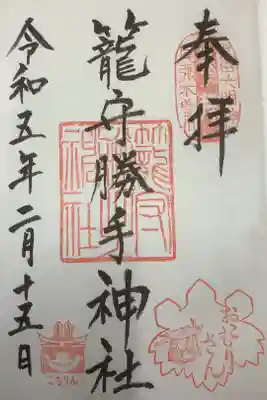 奉拝
籠守勝手神社
令和五年二月十五日
籠守
勝手
神社
おこもり
さん
こもりん